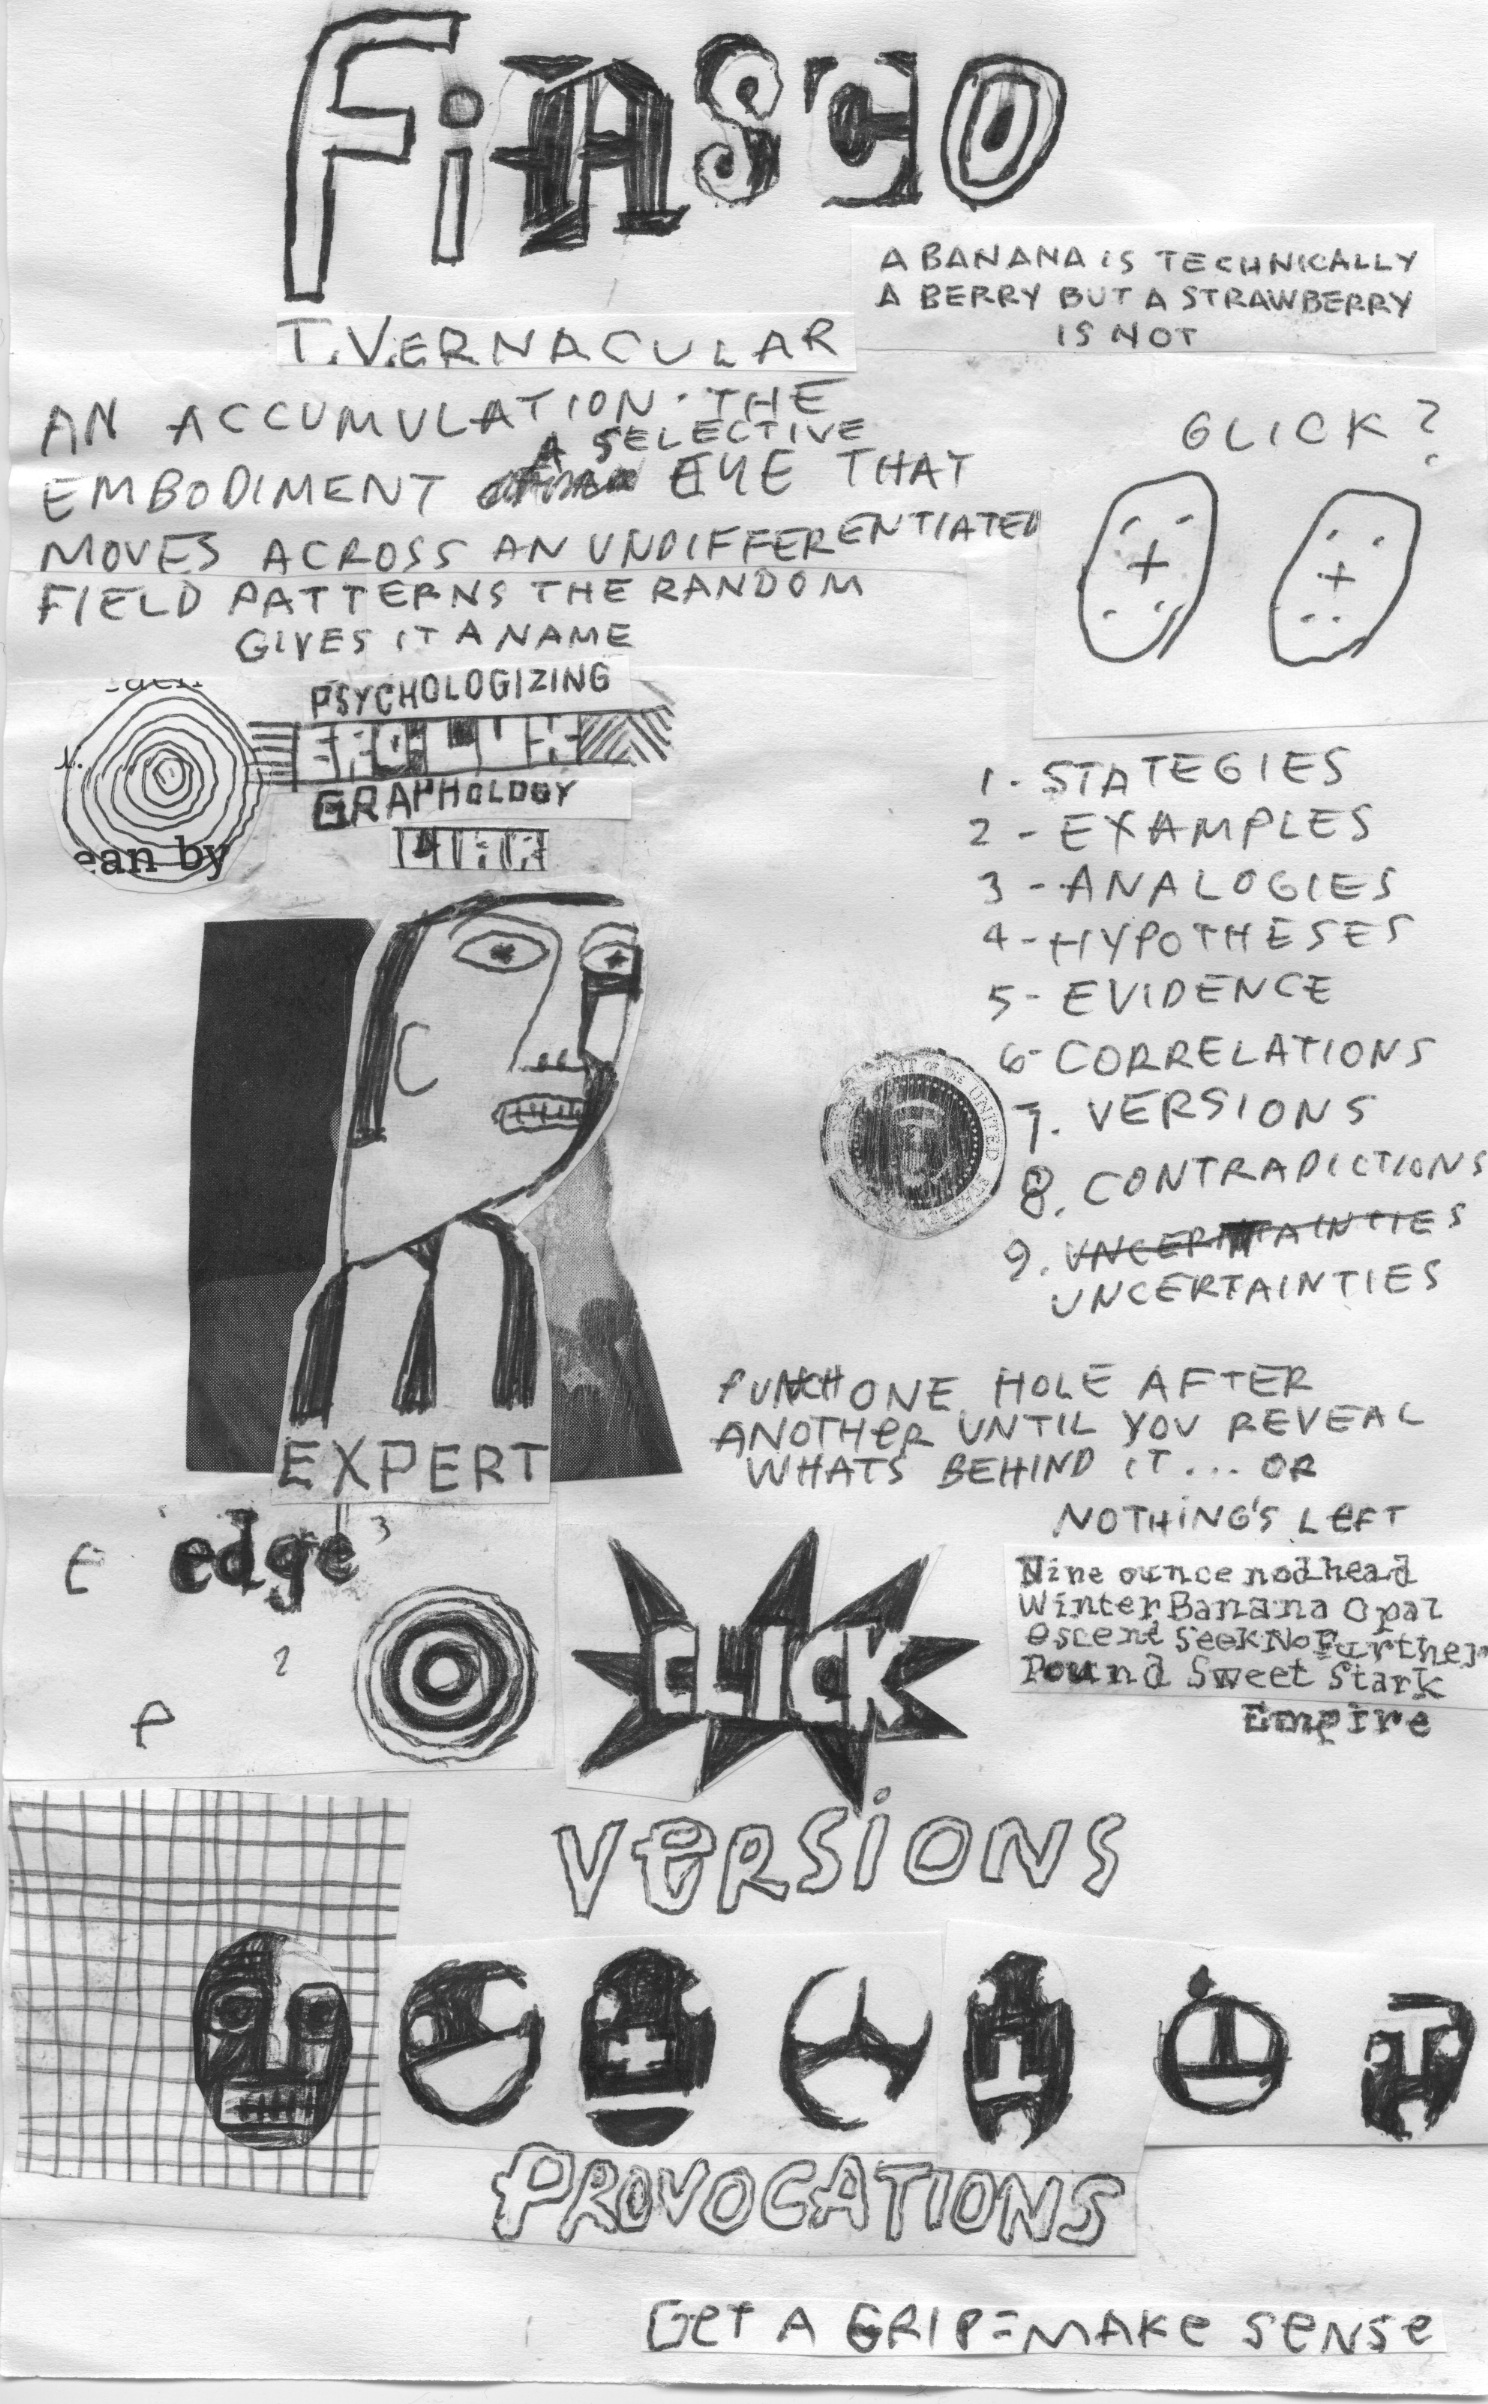 FiASCO
A BANANA IS TECHNICALLY
A BERRY BUT A STRAWBERRY
IS NOT
T.VERNACULAR
AN ACCUMULATION. THE
A SELECTIVE
EMBODIMENT EYE THAT
MOVES ACROSS AN UNDIFFERENTIATED
FIELD PATTERNS THE RANDOM
GIVES IT A NAME
GLICK?
PSYCHOLOGIZING
GRAPHOLOGY
ean by
1- STATEGIES
2- EXAMPLES
3- ANALOGIES
4- HYPOTHESES
5- EVIDENCE
6- CORRELATIONS
7. VERSIONS
8. CONTRADICTIONS
9. UNCERTAINTIES
UNCERTAINTIES
OF the UNITED
EXPERT
PUNCH ONE HOLE AFTER
ANOTHeR UNTIL YOU REVEAL
WHATS BEHIND IT... OR
NOTHiNG'S LeFT
e edge 3
2
e
CLICK
Nine ounce nodhead
Winter Banana Opal
escent Seek No Further
Pound Sweet Stark
Empire
VeRSiONS
PROVOCATIONS
GeT A GRIP=MAKe SeNSe